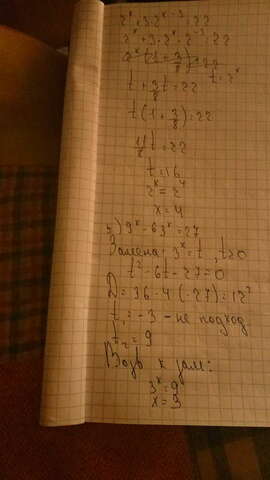 2ˣ+3·2ˣ⁻³=22
2ˣ+3·2ˣ·2⁻³=22
2ˣ(1+3/8)=22
t=2ˣ
t+3/8t=22
t(1+3/8)=22
11/8t=22
t=16
2ˣ=2⁴
x=4
5) 9ˣ-6·3ˣ=27
Замена: 3ˣ=t, t>0
t²-6t-27=0
D=36-4·(-27)=12²
t₁=-3 - не подход.
t₂=9
Возв к зам:
3ˣ=9
x=3